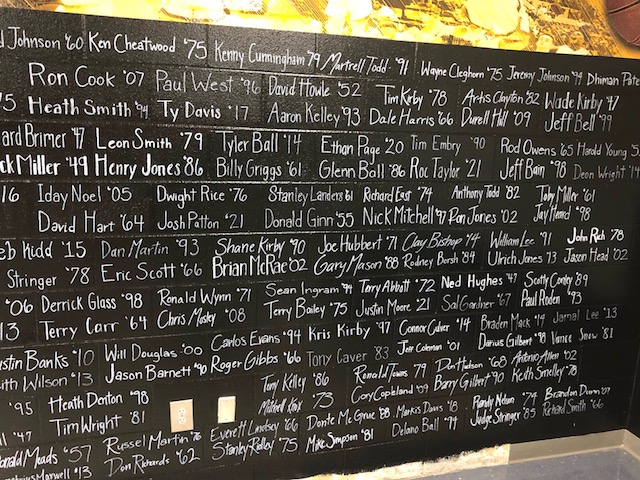 Johnson '60 Ken Cheatwood '75 Kenny Cunningham '79 Martrell Todd '91 Wayne Cleghorn '75 Jeremy Johnson '94 Dhiman
Ron Cook '07 Paul West '96 David Houle '52 Tim Kirby '78 Artis Clayton '82 Wade Kirby '47
Heath Smith '94 Ty Davis '17 Aaron Kelley '93 Dale Harris '66 Durell Hall '09 Jeff Bell '99
Brimer '47 Leon Smith '79 Tyler Ball '14 Ethan Page '20 Tim Embry '90 Rod Owens '65 Harold Young
Miller '49 Henry Jones '86 Billy Griggs '61 Glenn Ball '86 Roc Taylor '21 Jeff Bain '98 Deon Wright '14
'16 Iday Noel '05 Dwight Rice '76 Stanley Landers 61 Richard East '74 Anthony Todd '82 Toby Miller '61
David Hart '64 Josh Patton '21 Donald Ginn '55 Nick Mitchell '97 Dan Jones '02 Jay Hamed '98
Kidd '15 Dan Martin '93 Shane Kirby '90 Joe Hubbert '71 Clay Bishop '14 William Lee '91 John Rich '78
Stringer '78 Eric Scott '66 Brian McRae '02 Gary Mason '88 Rodney Borsh '84 Ulrich Jones 13 Jason Head '02
'06 Derrick Glass '98 Ronald Wynn '71 Sean Ingram '94 Terry Abbott '72 Ned Hughes '47 Scotty Corley '89
'13 Terry Carr '64 Chris Mosley '08 Terry Bailey '75 Justin Moore '21 Sal Gardner '67 Paul Roden '93
Banks '10 Will Douglas '00 Carlos Evans '94 Kris Kirby '97 Connor Culver '14 Braden Mack '14 Jamal Lee '13
Wilson '13 Jason Barnett '90 Roger Gibbs '66 Tony Caver '83 Jeff Coleman '01 Darius Gilbert '18 Vance Snow '81
'95 Heath Donton '98 Tony Kelley '86 Ronald Towns 79 Don Hudson '68 Antonio Allen '02
Tim Wright '81 Mitchell '73 Cory Copeland '09 Barry Gilbert '90 Keith Smelley '78
'47 Everett Lindsey '66 Donte McGrue '88 Markis Davis '18 Randy Nelson '74 Brandon Dunn '07
Meads '57 Russel Martin '76 Stanley Ridley '75 Mike Simpson '81 Delano Ball '94 Judge Stringer '85 Richard Smith '66
Maxwell '13 Don Richards '62